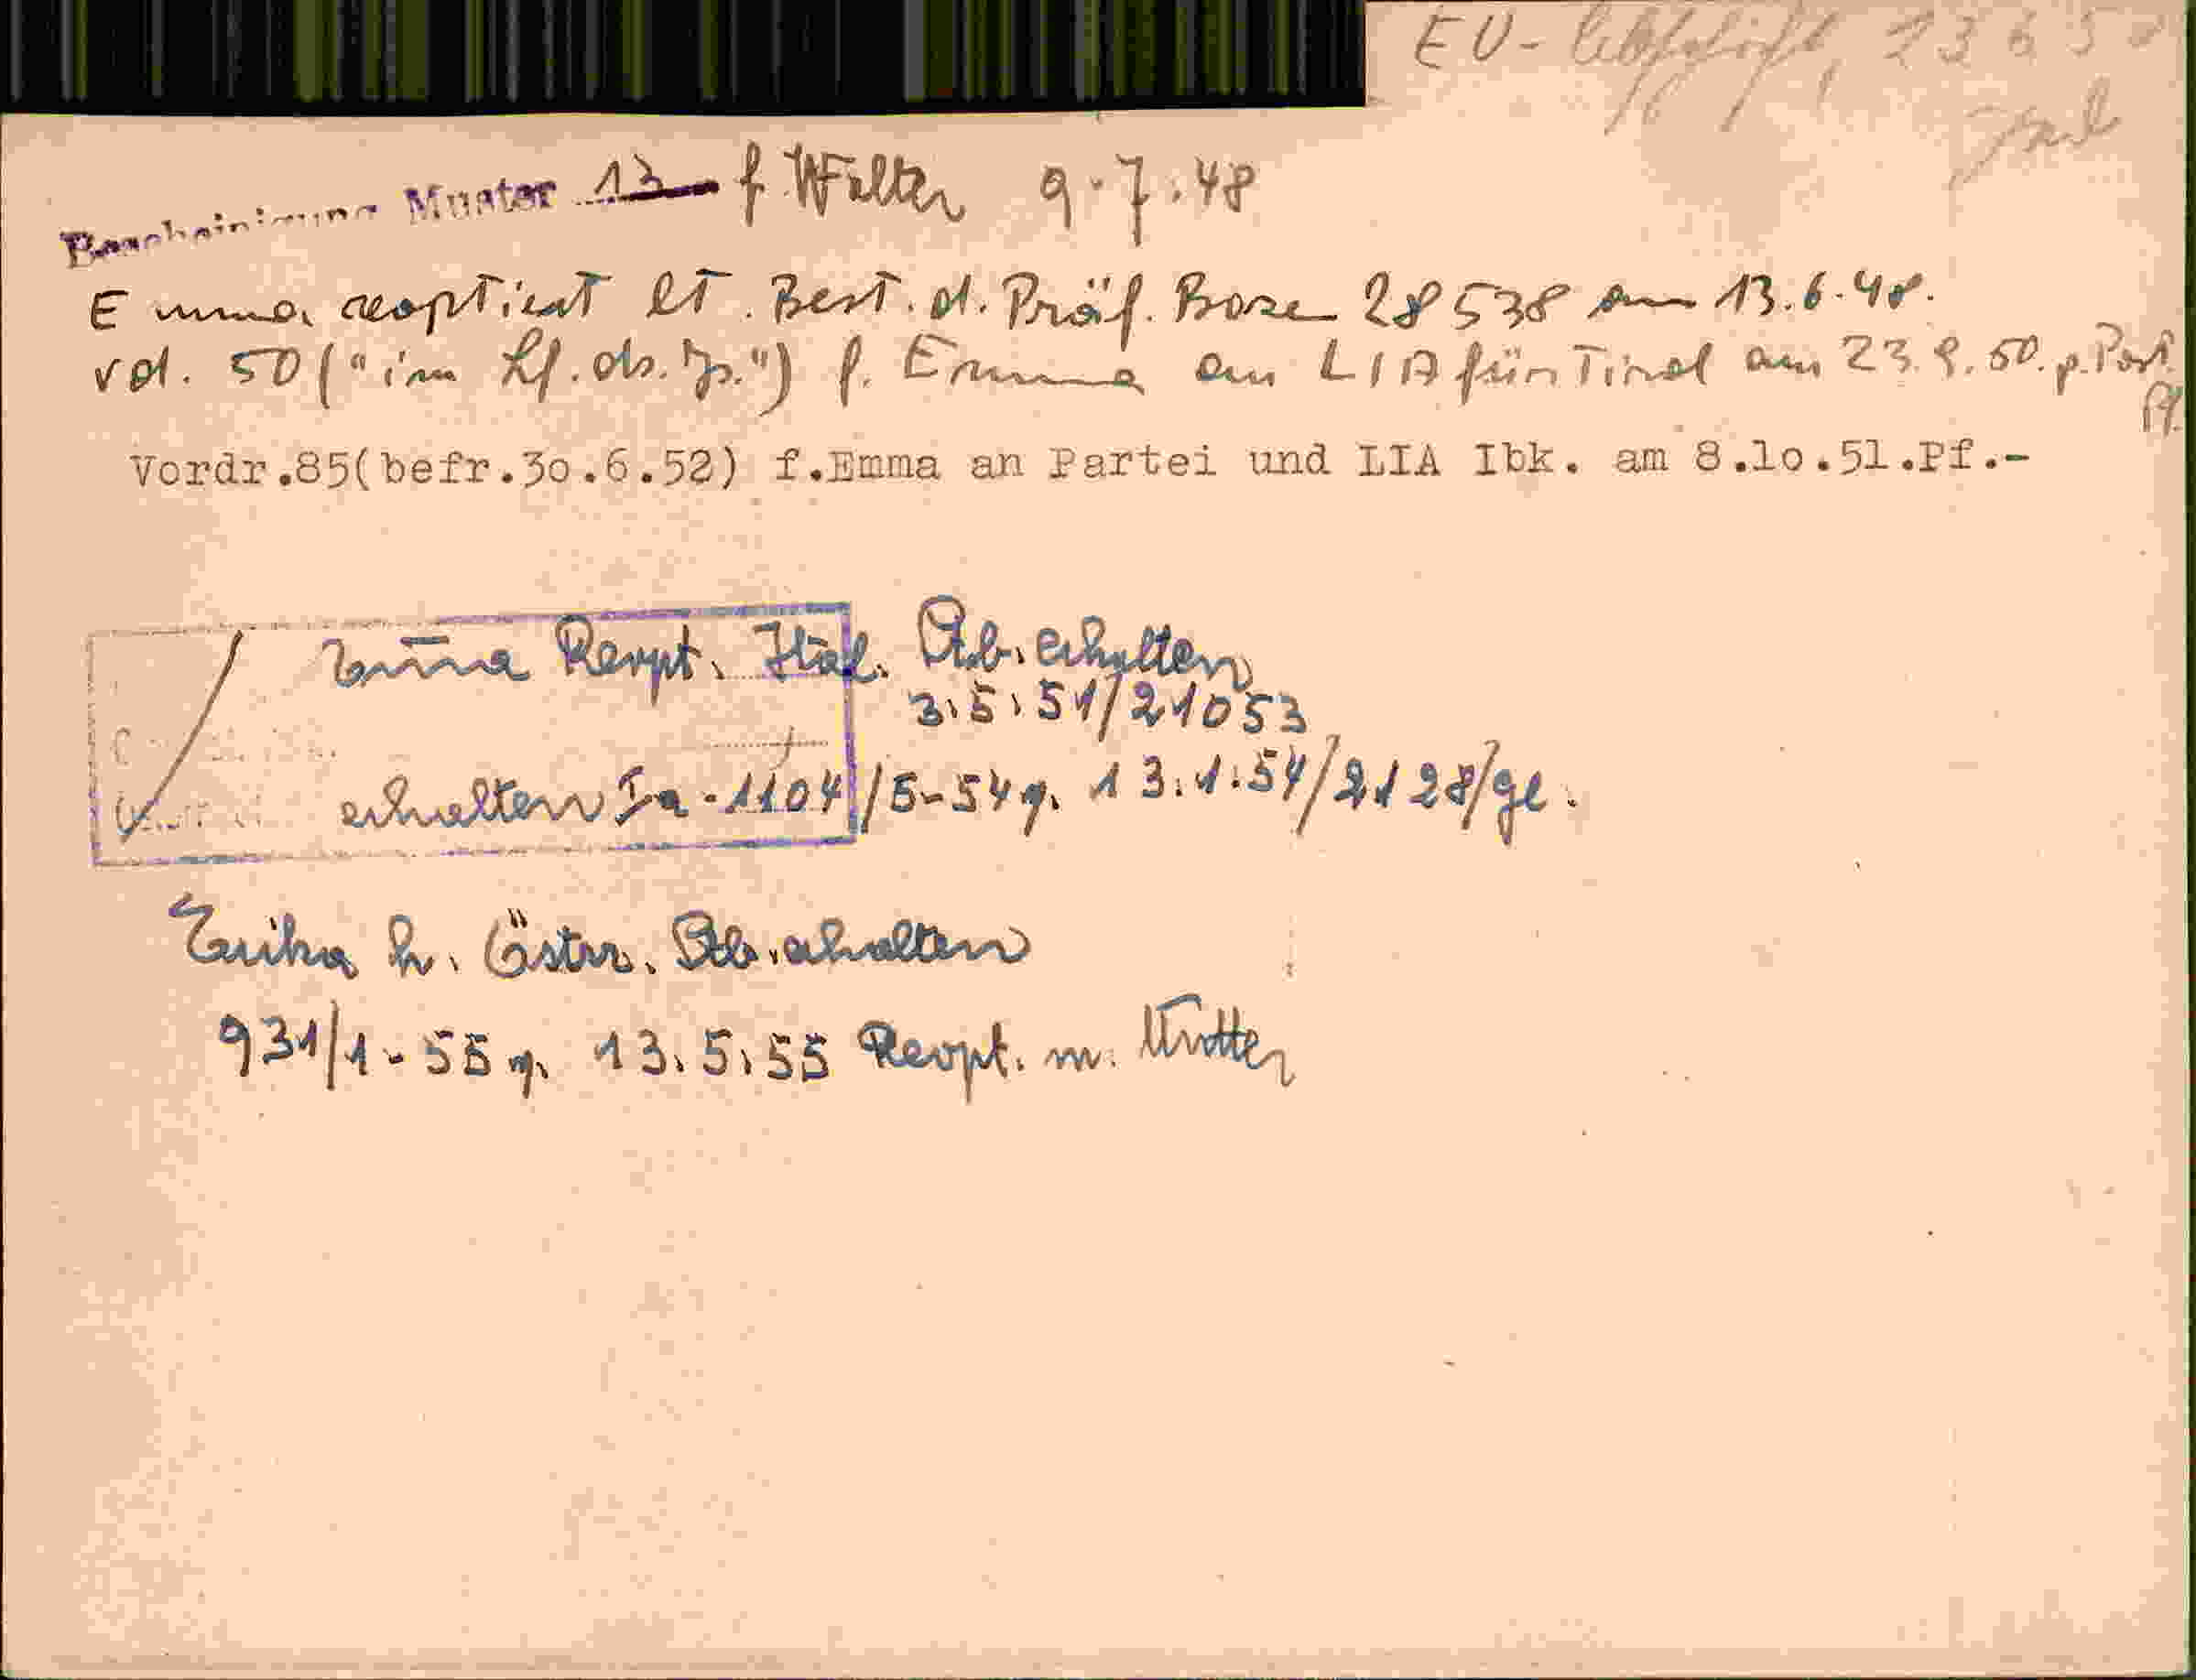 EU- 23 6 50
Bescheinigung Muster 13 f. Walter 9.7.48
Emma reoptiert lt. Best. d. Präf. Bozen 28538 am 13.6.48.
vd. 50 ("im Lf. ds. Js.") f. Emma an LIA für Tirol am 23.9.50. p. Post. Pf.
Vordr.85(befr.3o.6.52) f.Emma an Partei und LIA Ibk. am 8.1o.51.Pf.-
Emma Reopt. Ital. Stb. erhalten
3.5.51/21053
erhalten Ia-1104/5-54 g. 13.1.54/2128/ge.
Erika h. Östr. Stb. erhalten
931/1-55 g. 13.5.55 Reopt. m. Mutter